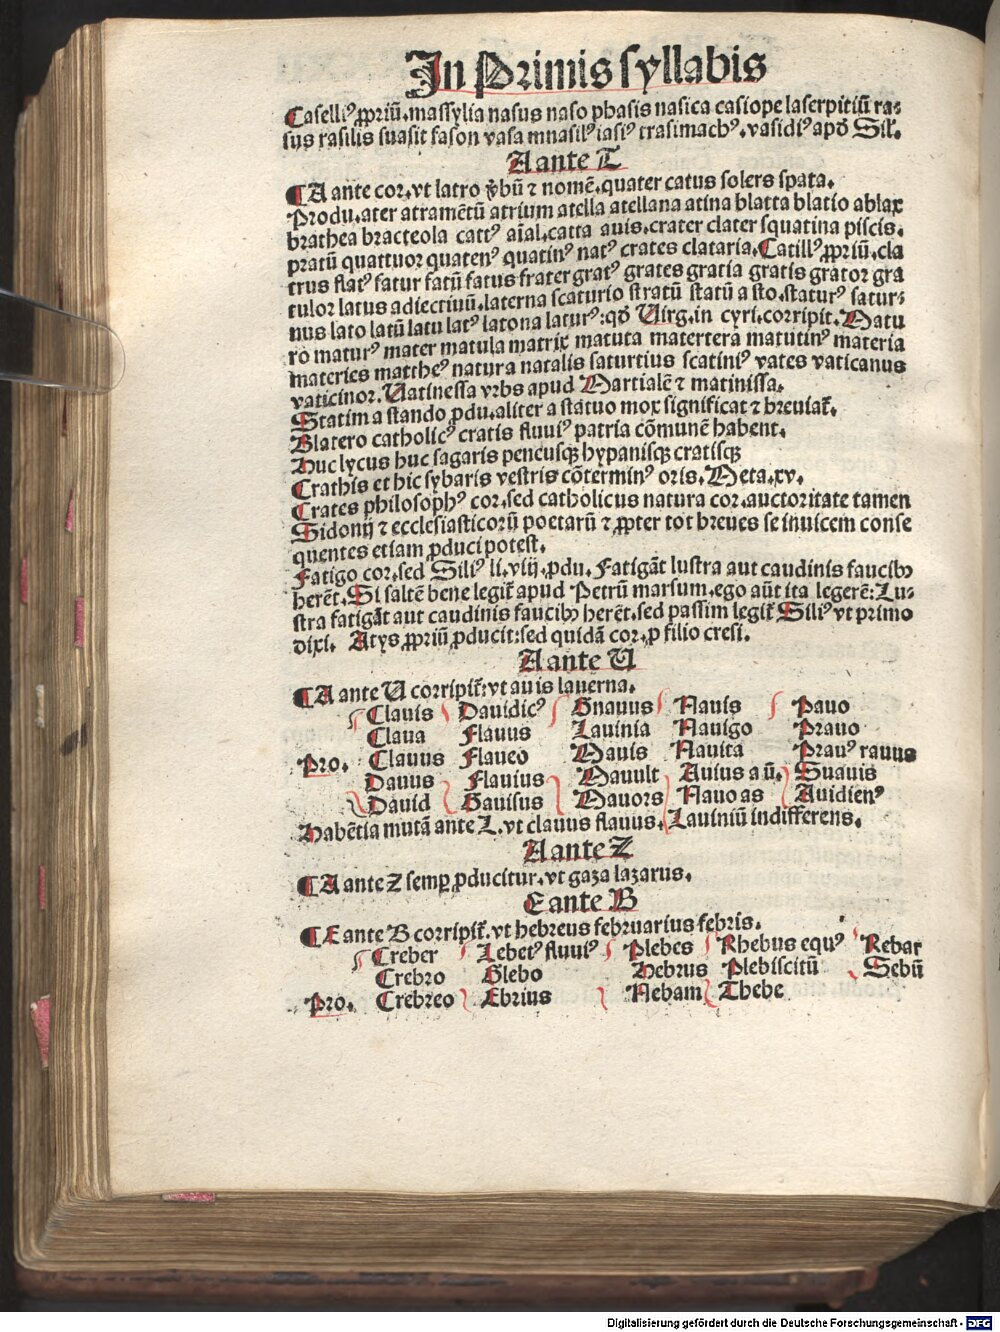 In Primis syllabis
Caselliꝰ ꝓpriū.massylia nasus naso phasis nasica casiope laserpitiū ra⸗
sus rasilis suasit sason vasa mnasilꝰ iasiꝰ trasimachꝰ.vasidiꝰ apd̄ Sil.
A ante T
¶A ante cor.vt latro v̄bū ⁊ nomē.quater catus solers spata.
Produ.ater atramētū atrium atella atellana atina blatta blatio ablax
brathea bracteola cattꝰ aīal.catta auis.crater clater squatina piscis.
pratū quattuor quatenꝰ quatinꝰ natꝰ crates clataria.Catillꝰ ꝓpriū.cla
trus flatꝰ fatur fatū fatus frater gratꝰ grates gratia gratis grator gra
tulor latus adiectiuū.laterna scaturio stratū statū a sto.staturꝰ satur⸗
nus lato latū latu latꝰ latona laturꝰ:qd̄ Virg.in cyri.corripit.Matu
ro maturꝰ mater matula matrix matuta matertera matutinꝰ materia
materies mattheꝰ natura natalis saturtius scatiniꝰ vates vaticanus
vaticinor.Uatinessa vrbs apud Martialē ⁊ matinissa.
Statim a stando ꝓdu.aliter a statuo mox significat ⁊ breuiat̄.
Blatero catholicꝰ cratis fluuiꝰ patria cōmunē habent.
Huc lycus huc sagaris peneusqꝫ hypanisqꝫ cratisqꝫ
Crathis et hic sybaris vestris cōterminꝰ oris.Meta.xv.
Crates philosophꝰ cor.sed catholicus natura cor.auctoritate tamen
Sidonij ⁊ ecclesiasticorū poetarū ⁊ ꝓpter tot breues se inuicem conse
quentes etiam ꝓduci potest.
Fatigo cor.sed Siliꝰ li.viij.ꝓdu.Fatigāt lustra aut caudinis faucibꝫ
herēt.Si saltē bene legit̄ apud Petrū marsum.ego aūt ita legerē:Lu⸗
stra fatigāt aut caudinis faucibꝫ herēt.sed passim legit̄ Siliꝰ vt primo
dixi. Atys ꝓpriū ꝓducit:sed quidā cor.ꝓ filio cresi.
A ante U
¶A ante U corripit̄:vt auis lauerna.
Clauis Dauidicꝰ Gnauus Nauis Pauo
Claua Flauus Lauinia Nauigo Prauo
Pro. Clauus Flaueo Mauis Nauita Prauꝰ rauus
Dauus Flauius Mauult Auius a ū. Suauis
Dauid Gauisus Mauors Nauo as Auidienꝰ
Habētia mutā ante L.vt clauus flauus.Lauiniū indifferens.
A ante Z
¶A ante Z semꝑ ꝓducitur.vt gaza lazarus.
E ante B
¶E ante B corripit̄.vt hebreus februarius febris.
Creber Lebetꝰ fluuiꝰ Plebes Rhebus equꝰ Rebar
Crebro Glebo Hebrus Plebiscitū Sebū
Pro. Crebreo Ebrius Nebam Thebe
Digitalisierung gefördert durch die Deutsche Forschungsgemeinschaft - DFG